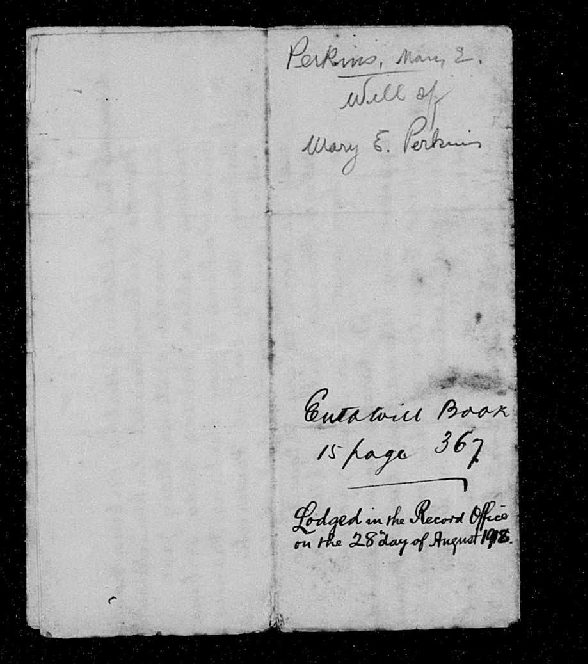 Perkins, Mary E.
Will of
Mary E. Perkins
Entd Will Book
15 page 367
Lodged in the Record Office
on the 28" day of August 1918.